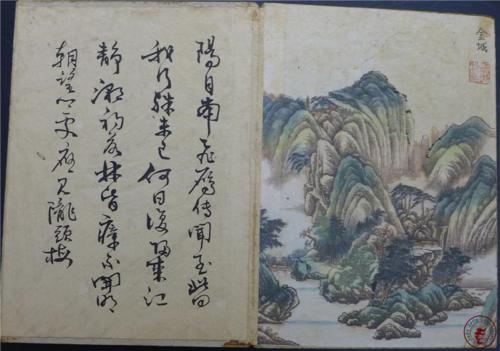 陽月南飛鴈傳聞至此回
我行殊未已何日復歸來江
靜潮初落林昏瘴不開明
朝望鄉處應見隴頭梅
金城